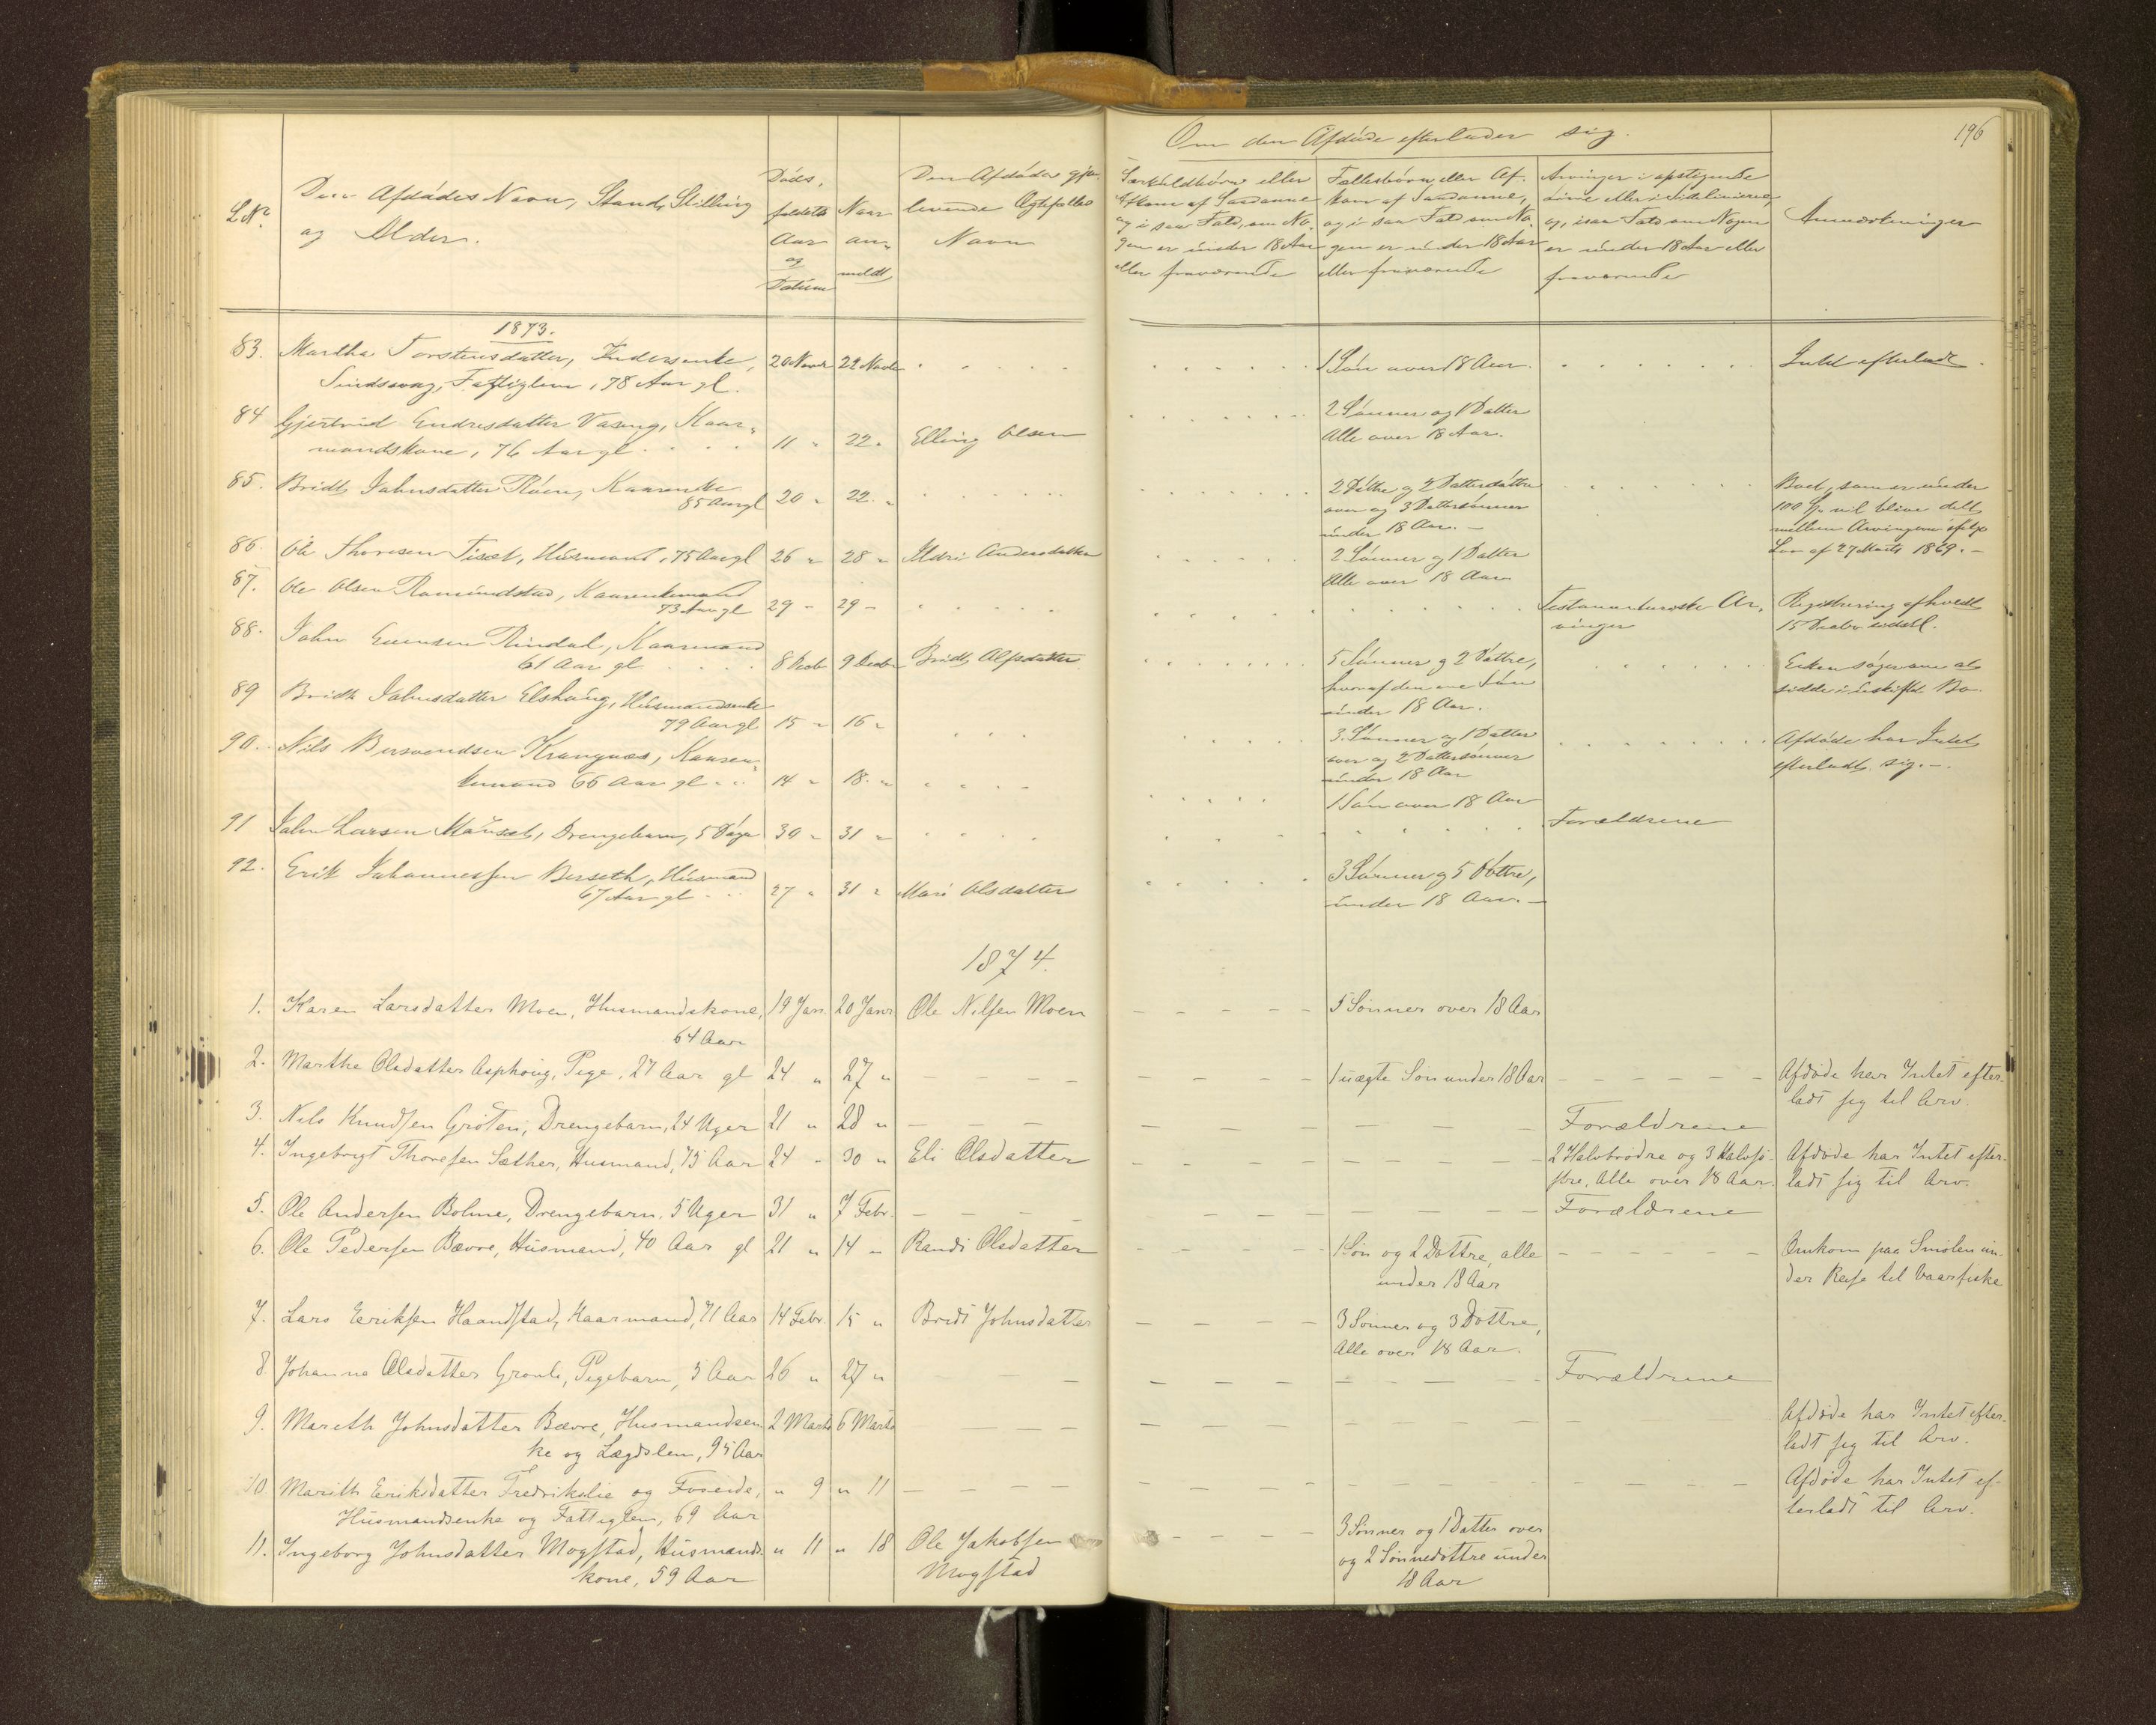 Om den Afdøde efterlader sig.
196
L.No.
Den Afdødes Navn, Stand, Stilling
og Alder.
Døds-
faldets
Aar
og
Datum
Naar
an-
meldt
Den Afdødes gjen-
levende Ægtefælles
Navn
Særkuldbørn eller
Afkom af Saadanne
og i saa Fald, om No-
gen er under 18 Aar
eller fraværende
Fællesbørn eller Af-
kom af Saadanne,
og i saa Fald om No-
gen er under 18 Aar
eller fraværende
Arvinger i opstigende
Linie eller i Sidelinierne,
og, i saa Fald om Nogen
er under 18 Aar eller
fraværende
Anmærkninger
1873.
83. Martha Torstensdatter, Inderstenke, 20 Novbr 22 Novbr 1 Søn over 18 Aar. Intet efterladt.
Fattiglem, 78 Aar gl.
84 Gjertrud Endresdatter Vaseng, Kaar- 2 Sønner og 1 Datter
mandskone, 76 Aar gl 11 " 22 " Elling Olsen Alle over 18 Aar.
85. Bridt Johnsdatter Røen, Kaarenke 20 " 22 " 2 Døttre og 2 Datterdøttre Boet, som er under
85 Aar gl over og 3 Dattersønner 100 Sp vil blive delt
under 18 Aar. mellem Arvingerne ifølge
86. Ole Thoresen Tiset, Husmand, 75 Aar gl 26 " 28 " Ildri Andersdatter 2 Sønner og 1 Datter Lov af 27 Marts 1869.
Alle over 18 Aar
87. Ole Olsen Romundstad, Kaarenkemand
73 Aar gl 29 - 29 - Testamentariske Ar- Registrering afholdt
vinger 15 Decbr
88. John Evensen Rindal, Kaarmand
61 Aar gl 8 Decbr 9 Decbr Bridt Alfsdatter 5 Sønner og 2 Døttre, Enken søger om at
hvoraf den ene Søn sidde i uskiftet Bo.
under 18 Aar.
89 Bridt Johnsdatter Elshaug, Husmandsenke
79 Aar gl 15 " 16 " 3 Sønner og 1 Datter Afdøde har Intet
over og 2 Dattersønner efterladt sig.
under 18 Aar
90. Nils Bersvendsen Krangnæs, Kaaren-
kemand 66 Aar gl 14 " 18 " 1 Søn over 18 Aar
91 John Larsen Maaset, Drengebarn, 5 Dage 30 " 31 " Forældrene
92. Erik Johannessen Berseth, Husmand
67 Aar gl 27 " 31 " Mari Olsdatter 3 Sønner og 5 Døttre,
under 18 Aar.
1874.
1. Karen Larsdatter Moen, Husmandskone, 19 Jan 20 Janr Ole Nilsen Moen 5 Sønner over 18 Aar
64 Aar
2. Marthe Olsdatter Asphoug, Pige, 27 Aar gl 24 " 27 " 1 uægte Søn under 18 Aar Afdøde har Intet efter-
ladt sig til Arv.
3. Nils Knudsen Grøten, Drengebarn, 24 Uger 21 " 28 " Forældrene
4. Ingebrigt Thoresen Sæther, Husmand, 75 Aar 24 " 30 " Eli Olsdatter 2 Halvbrødre og 3 Halvsø- Afdøde har Intet efter-
stre, Alle over 18 Aar. ladt sig til Arv.
5. Ole Andersen Bolme, Drengebarn, 5 Uger 31 " 7 Febr. Forældrene
6. Ole Pedersen Bævre, Husmand, 40 Aar gl 21 " 14 " Randi Olsdatter 1 Søn og 2 Døttre, alle Omkom paa Smølen un-
under 18 Aar der Reise til Vaarfiske
7. Lars Eriksen Haandstad, Kaarmand, 71 Aar 14 Febr. 15 " Bridt Johnsdatter 3 Sønner og 3 Døttre,
Alle over 18 Aar.
8 Johanna Olsdatter Grønli, Pigebarn, 5 Aar 26 " 27 " Forældrene
9. Mareth Johnsdatter Bævre, Husmandsen- 2 Marts 6 Marts Afdøde har Intet efter-
ke og Lægdslem, 95 Aar ladt sig til Arv.
10 Marith Eriksdatter Fredrikslie og Foseide, " 9 " 11 Afdøde har Intet ef-
Husmandsenke og Fattiglem, 69 Aar terladt til Arv.
11. Ingeborg Johnsdatter Mogstad, Husmands- " 11 " 18 Ole Jakobsen 3 Sønner og 1 Datter over
kone, 59 Aar Mogstad og 2 Sønnedøttre under
18 Aar